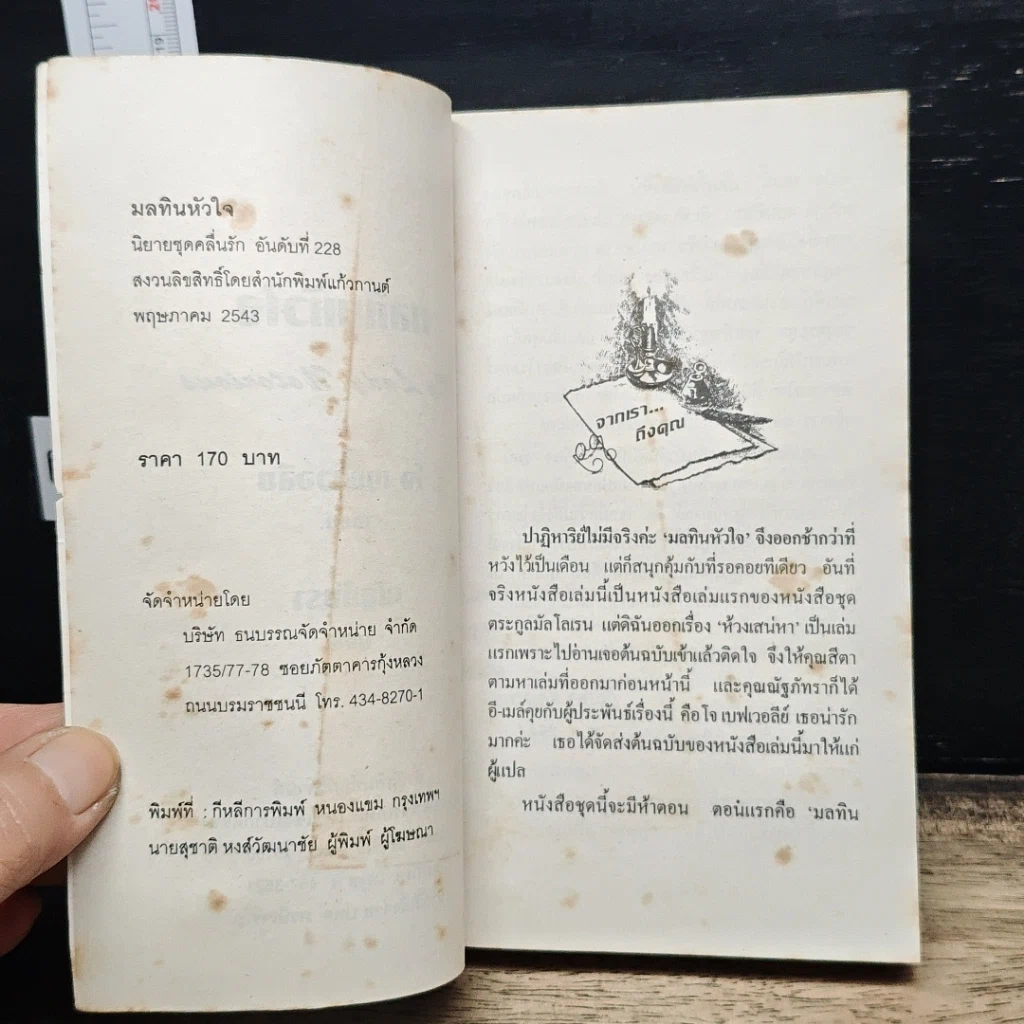 มลทินหัวใจ
นิยายชุดคลื่นรัก อันดับที่ 228
สงวนลิขสิทธิ์โดยสำนักพิมพ์แก้วกานต์
พฤษภาคม 2543
ราคา 170 บาท
จัดจำหน่ายโดย
บริษัท ธนบรรณจัดจำหน่าย จำกัด
1735/77-78 ซอยภัตตาคารกุ้งหลวง
ถนนบรมราชชนนี โทร. 434-8270-1
พิมพ์ที่ : กีหลีการพิมพ์ หนองแขม กรุงเทพฯ
นายสุชาติ หงส์วัฒนาชัย ผู้พิมพ์ ผู้โฆษณา
จากเรา...
ถึงคุณ
ปาฏิหาริย์ไม่มีจริงค่ะ ‘มลทินหัวใจ’ จึงออกช้ากว่าที่
หวังไว้เป็นเดือน แต่ก็สนุกคุ้มกับที่รอคอยทีเดียว อันที่
จริงหนังสือเล่มนี้เป็นหนังสือเล่มแรกของหนังสือชุด
ตระกูลมัลโลเรน แต่ดิฉันออกเรื่อง ‘ห้วงเสน่หา’ เป็นเล่ม
แรกเพราะไปอ่านเจอต้นฉบับเข้าแล้วติดใจ จึงให้คุณสีตา
ตามหาเล่มที่ออกมาก่อนหน้านี้ และคุณณัฐภัทราก็ได้
อี-เมล์คุยกับผู้ประพันธ์เรื่องนี้ คือโจ เบฟเวอลีย์ เธอน่ารัก
มากค่ะ เธอได้จัดส่งต้นฉบับของหนังสือเล่มนี้มาให้แก่
ผู้แปล
หนังสือชุดนี้จะมีห้าตอน ตอนแรกคือ ‘มลทิน